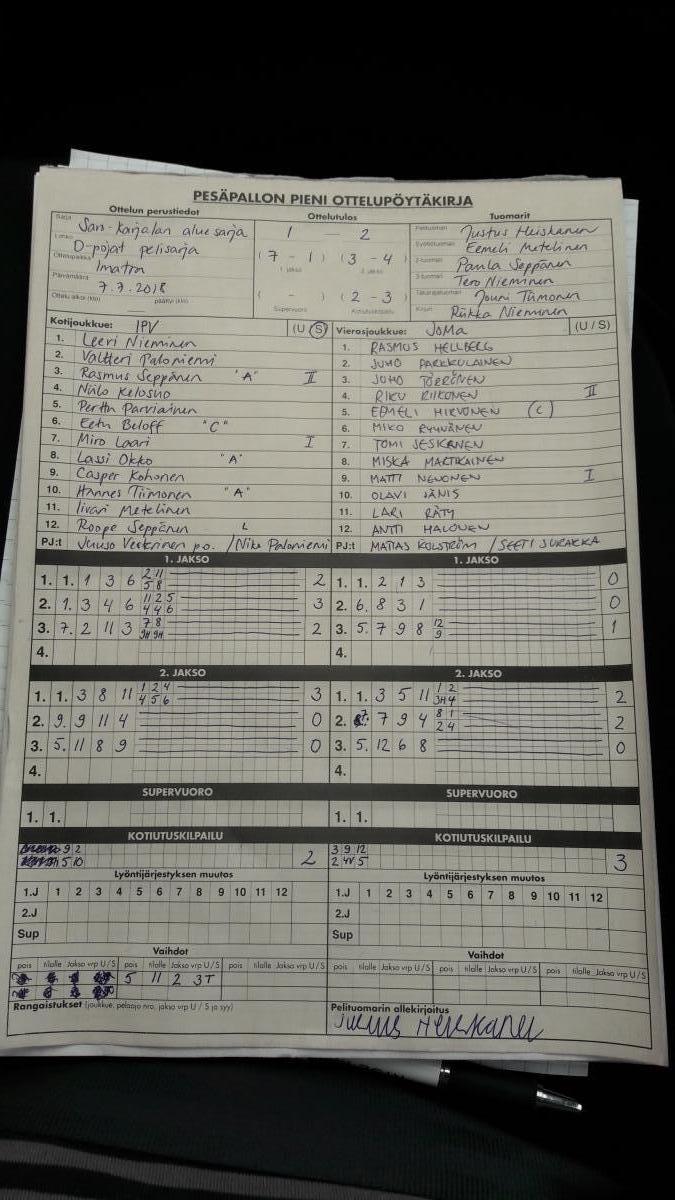 PESÄPALLON PIENI OTTELUPÖYTÄKIRJA
Ottelun perustiedot Ottelutulos Tuomarit
Sarja San-karjalan aluesarja
Lohko D-pojat pelisarja
Ottelupaikka Imatra
Päivämäärä 7.7.2018
Ottelu alkoi (klo) päättyi (klo)
1 - 2
(7 - 1) (3 - 4)
1. jakso 2. jakso
( - ) (2 - 3)
Supervuoro Kotiutuskilpailu
Pelituomari Justus Heiskanen
Syöttötuomari Eemeli Metelinen
2-tuomari Paula Seppänen
3-tuomari Tero Nieminen
Takarajatuomari Jouni Tiimonen
Kirjuri Riikka Nieminen
Kotijoukkue: IPV (U/S)
1. Leevi Nieminen
2. Valtteri Paloniemi
3. Rasmus Seppänen "A" II
4. Niilo Kelosuo
5. Perttu Parviainen
6. Eetu Beloff "C"
7. Miro Laari I
8. Lassi Okko "A"
9. Casper Kohonen
10. Hannes Tiimonen "A"
11. Iivari Metelinen
12. Roope Seppänen L
PJ:t Juuso Vehkrinen p.o. / Niko Paloniemi
Vierasjoukkue: JoMa (U/S)
1. RASMUS HELLBERG
2. JUHO PARKKULAINEN
3. JUHO TÖRRÖNEN
4. RIKU RIIKONEN II
5. EEMELI HIRVONEN (C)
6. MIKO RYYNÄNEN
7. TOMI JESKANEN
8. MISKA MARTIKAINEN
9. MATTI NEVONEN I
10. OLAVI JÄNIS
11. LARI RÄTY
12. ANTTI HALONEN
PJ:t MATIAS KOLSTRÖM / SEETI SURAKKA
1. JAKSO
1. 1. 1 3 6 2 11 5 8 2
2. 1. 3 4 6 11 2 5 4 4 6 3
3. 7. 2 11 3 7 8 9H 9H 2
4.
1. JAKSO
1. 1. 2 1 3 0
2. 6. 8 3 1 0
3. 5. 7 9 8 12 9 1
4.
2. JAKSO
1. 1. 3 8 11 1 2 4 4 5 6 3
2. 9. 9 11 4 0
3. 5. 11 8 9 0
4.
2. JAKSO
1. 1. 3 5 11 1 2 3H 4 2
2. 7 7 9 4 8 1 2 4 2
3. 5. 12 6 8 0
4.
SUPERVUORO
1. 1.
SUPERVUORO
1. 1.
KOTIUTUSKILPAILU
9 2
5 10 2
KOTIUTUSKILPAILU
3 9 12
2 4V 5 3
Lyöntijärjestyksen muutos
1.J 1 2 3 4 5 6 7 8 9 10 11 12
2.J
Sup
Lyöntijärjestyksen muutos
1.J 1 2 3 4 5 6 7 8 9 10 11 12
2.J
Sup
Vaihdot
pois tilalle Jakso vrp U/S pois tilalle Jakso vrp U/S pois tilalle Jakso vrp U/S
5 11 2 3T
Vaihdot
pois tilalle Jakso vrp U/S pois tilalle Jakso vrp U/S pois tilalle Jakso vrp U/S
Rangaistukset (joukkue, pelaaja nro, jakso vrp U / S ja syy)
Pelituomarin allekirjoitus
Justus Heiskanen